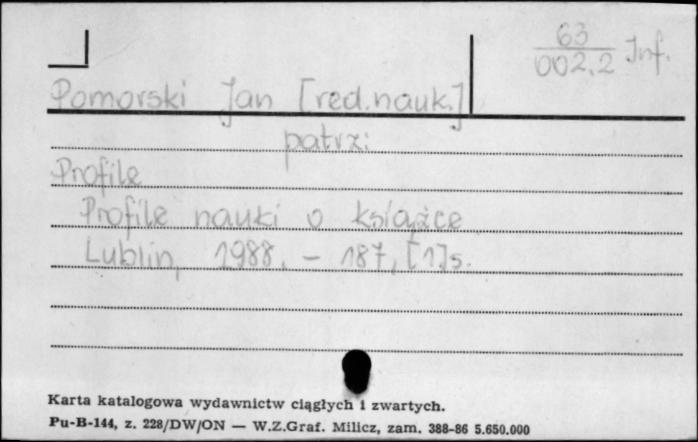 63
002.2 Inf.
Pomorski Jan [red.nauk.]
patrz:
Profile
Profile nauki o książce
Lublin, 1988. - 187, [1]s.
Karta katalogowa wydawnictw ciągłych i zwartych.
Pu-B-144, z. 228/DW/ON — W.Z.Graf. Milicz, zam. 388-86 5.650.000